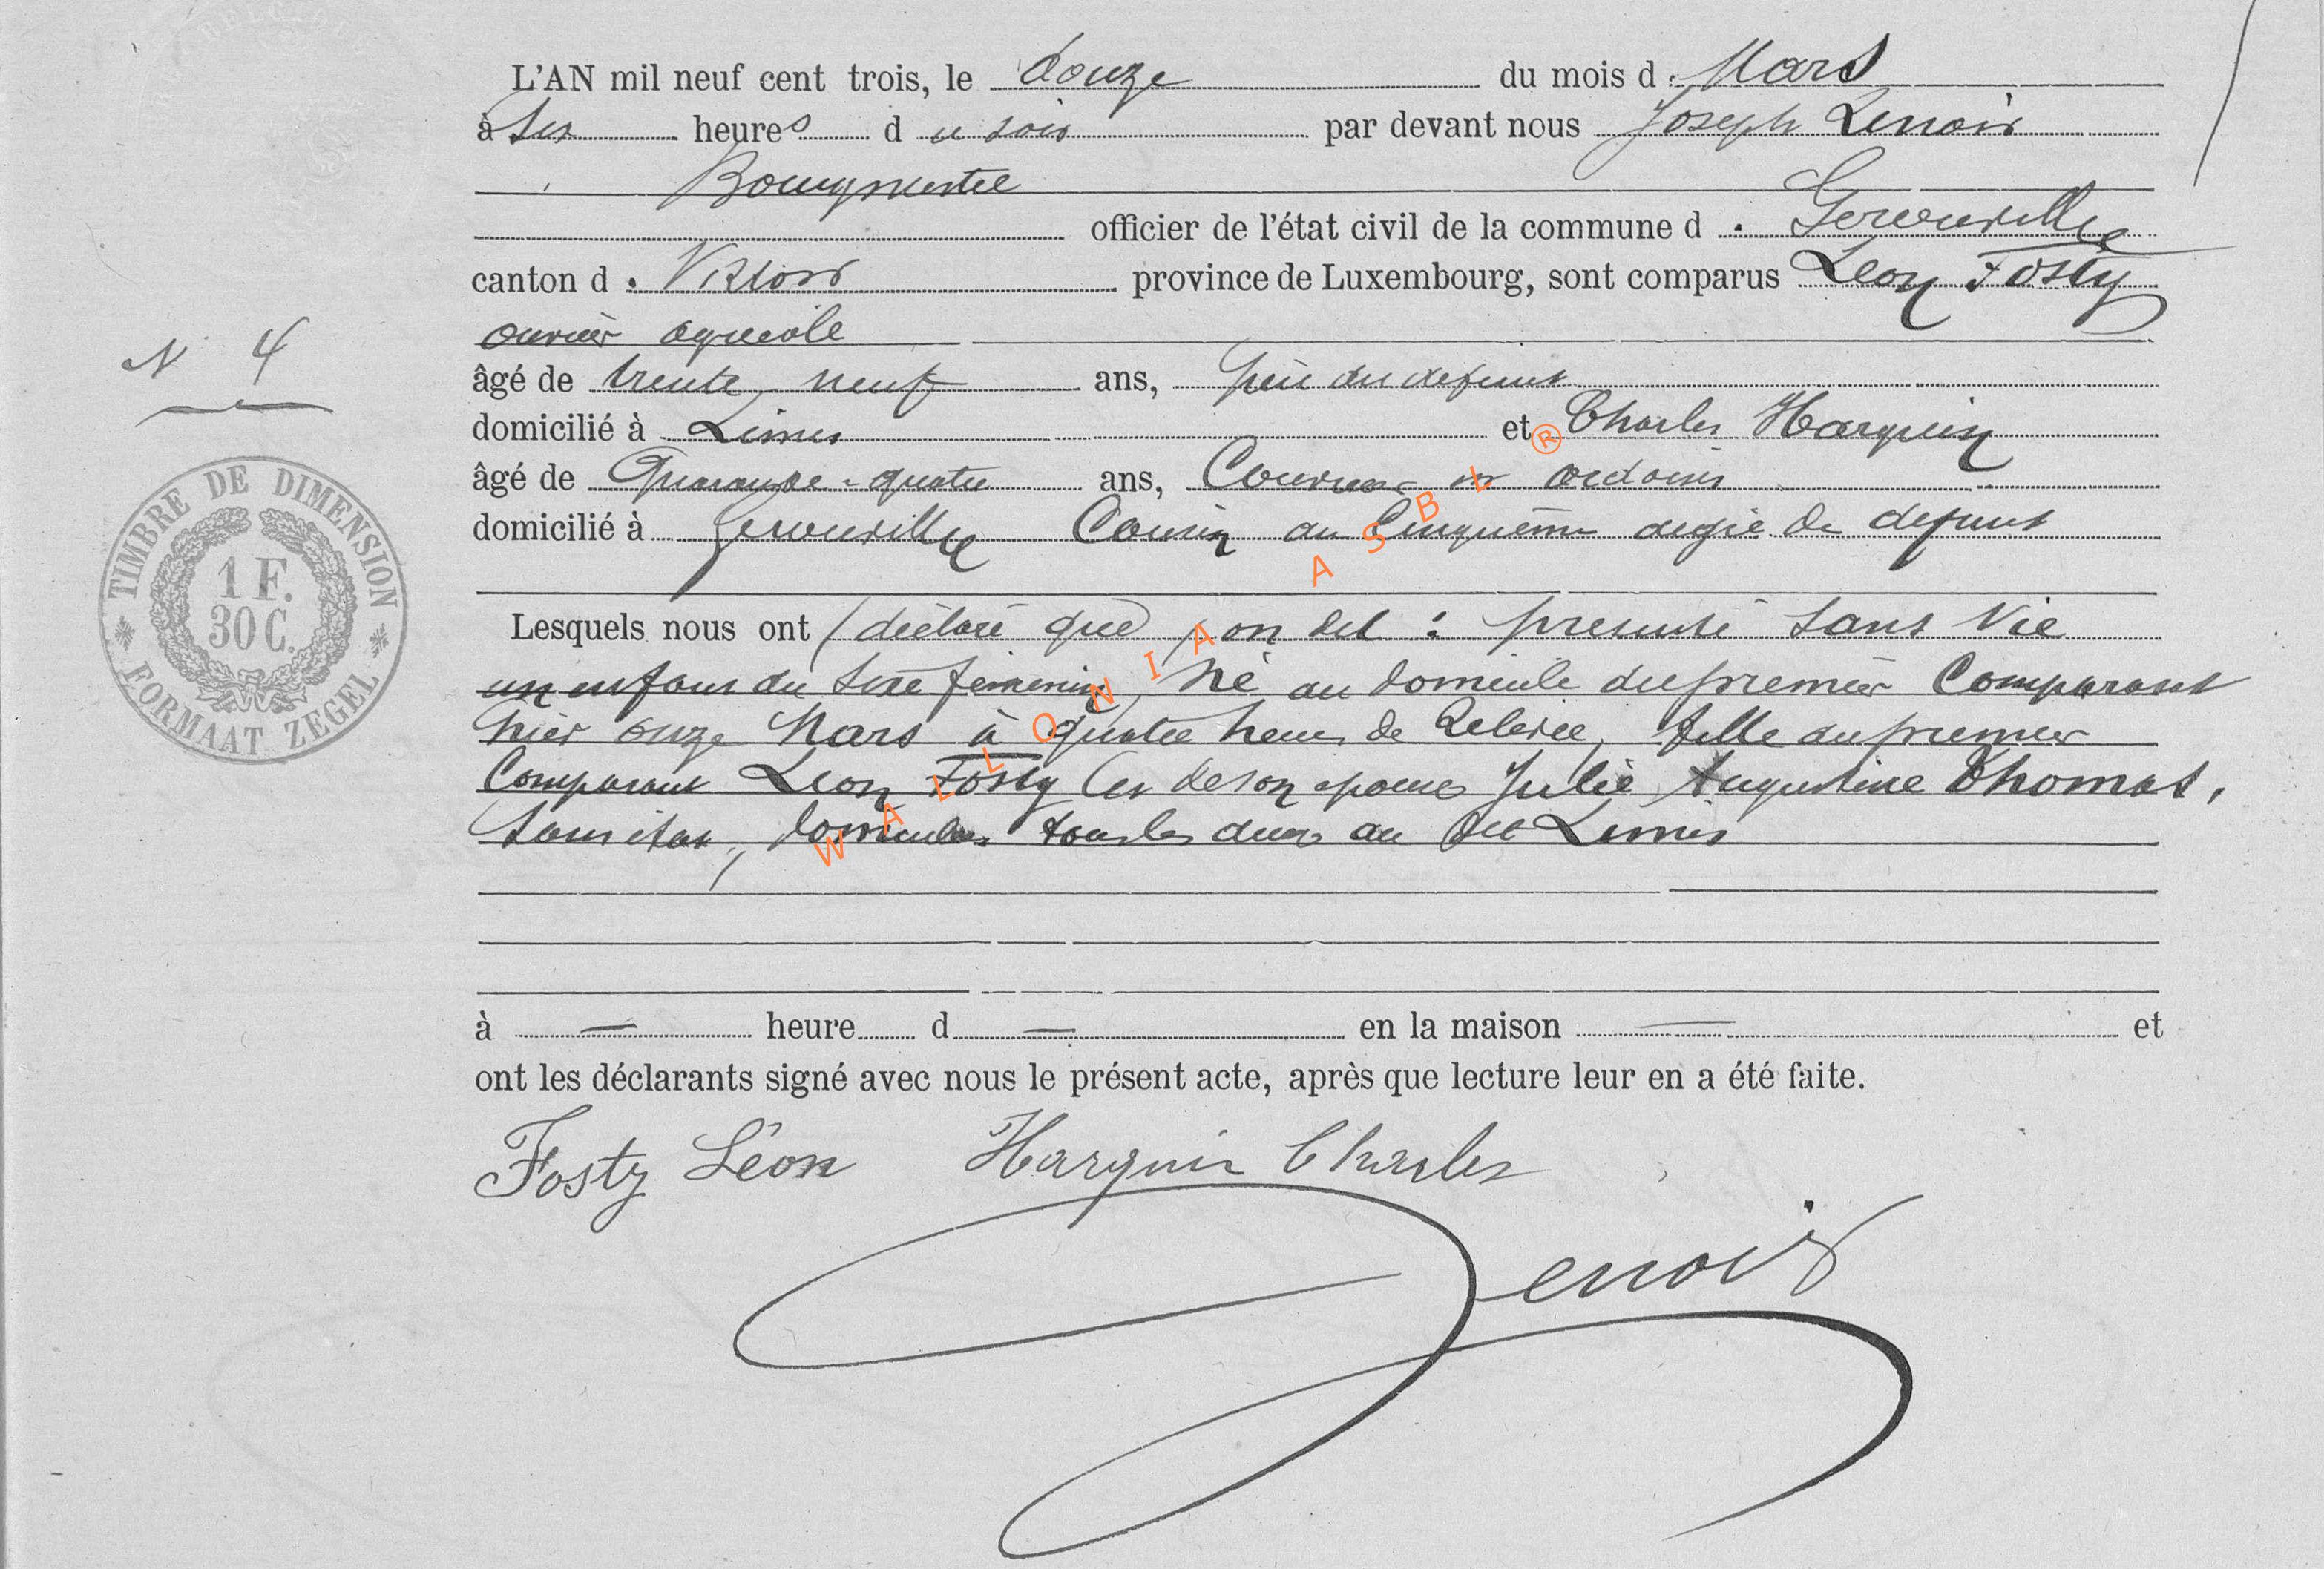 L'AN mil neuf cent trois, le douze du mois d. Mars
à six heures du soir par devant nous Joseph Lenoir
Bourgmestre
officier de l'état civil de la commune d. Gerouville
canton d. Virton province de Luxembourg, sont comparus Leon Fosty
ouvrier agricole
N 4
âgé de trente neuf ans, père du defunt
domicilié à Limes et Charles Harquin
âgé de Quarante-quatre ans, Couvreur en ardoises
domicilié à Gerouville Cousin au Cinquième degré du defunt
Lesquels nous ont (déclaré que) on dit : presenté sans Vie
un enfant du sexe féminin, né au domicile du premier Comparant
hier onze Mars à quatre heures de Relevée, fille du premier
Comparant Leon Fosty et de son epouse Julie Augustine Thomas,
Sans état, domiciliés tous les deux au dit Limes
à — heure d — en la maison — et
ont les déclarants signé avec nous le présent acte, après que lecture leur en a été faite.
Fosty Léon Harquin Charles
Lenoir
TIMBRE DE DIMENSION
1 F.
30 C.
FORMAAT ZEGEL
WALLONIA ASBL ®